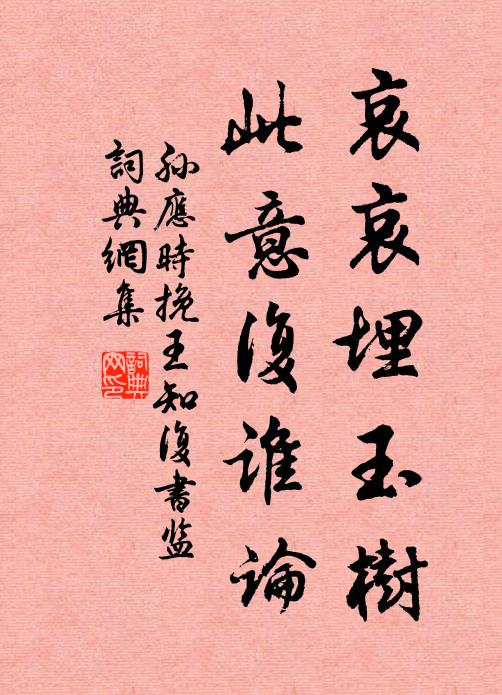 哀哀埋玉樹
此意復誰論
孫應時挽王知復書監
詞典網集
詞典
网印